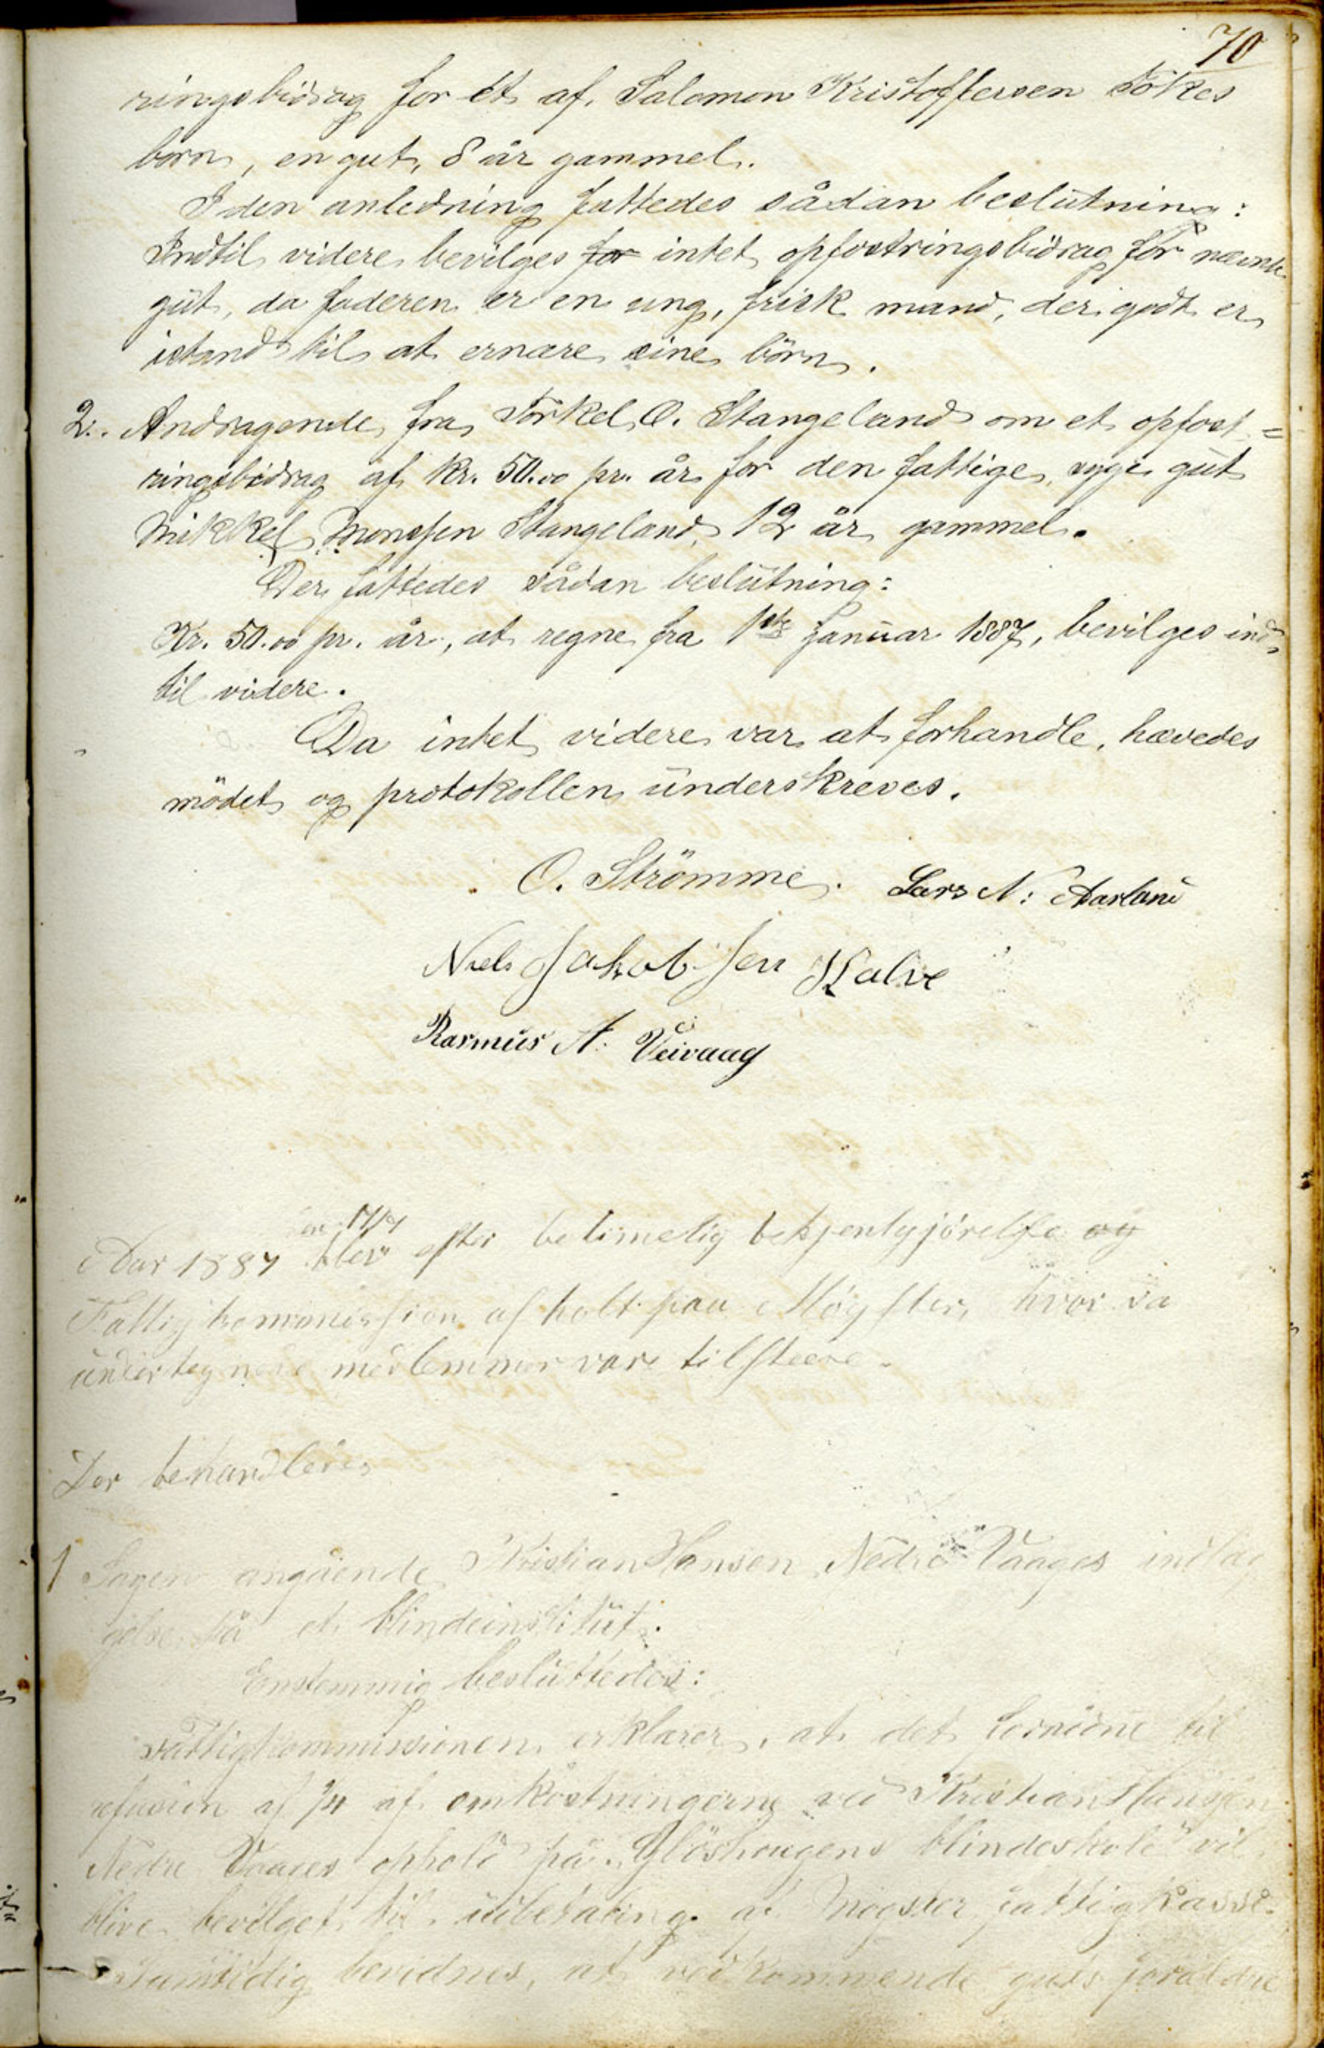 70
ringsbidrag for et af Salomon Kristoffersen Tökes
börn, en gut, 8 år gammel.
I den anledning fattedes sådan beslutning:
Indtil videre bevilges for intet opfostringsbidrag for nævnte
gut, da faderen er en ung, frisk mand, der godt er
istand til at ernære sine börn.
2. Andragende fra Törkel O. Stangeland om et opfost=
ringsbidrag af Kr. 50.00 pr. år for den fattige, syge gut
Mikkel Monssen Stangeland, 12 år gammel.
Der fattedes sådan beslutning:
Kr. 50.00 pr. år, at regne fra 1ste Januar 1887, bevilges ind-
til videre.
Da intet videre var at forhandle, hævedes
mödet og protokollen underskreves.
O. Strömme. Lars N: Aarland
Niels Jakobsen Kalve
Rasmus A. Veivaag
den 17/7
Aar 1887 blev efter betimelig bekjentgjörelse og
Fattigkommission afholt paa Møgster, hvor da
undertegnede medlemmer vare tilstede.
Der behandledes
1 Sagen angående Kristian Hansen Nedre Vaages indlæg
gelse på et blindeinstitut.
Enstemmig besluttedes:
Fattigkommissionen erklærer, at det fornödne til
refusion af 1/4 af omkostningerne ved Kristian Hansen
Nedre Vaages ophold på "Glöshaugens blindeskole" vil
blive bevilget til udbetaling af Møgster fattigkasse.
Samtidig bevidnes, at vedkommende guts forældre